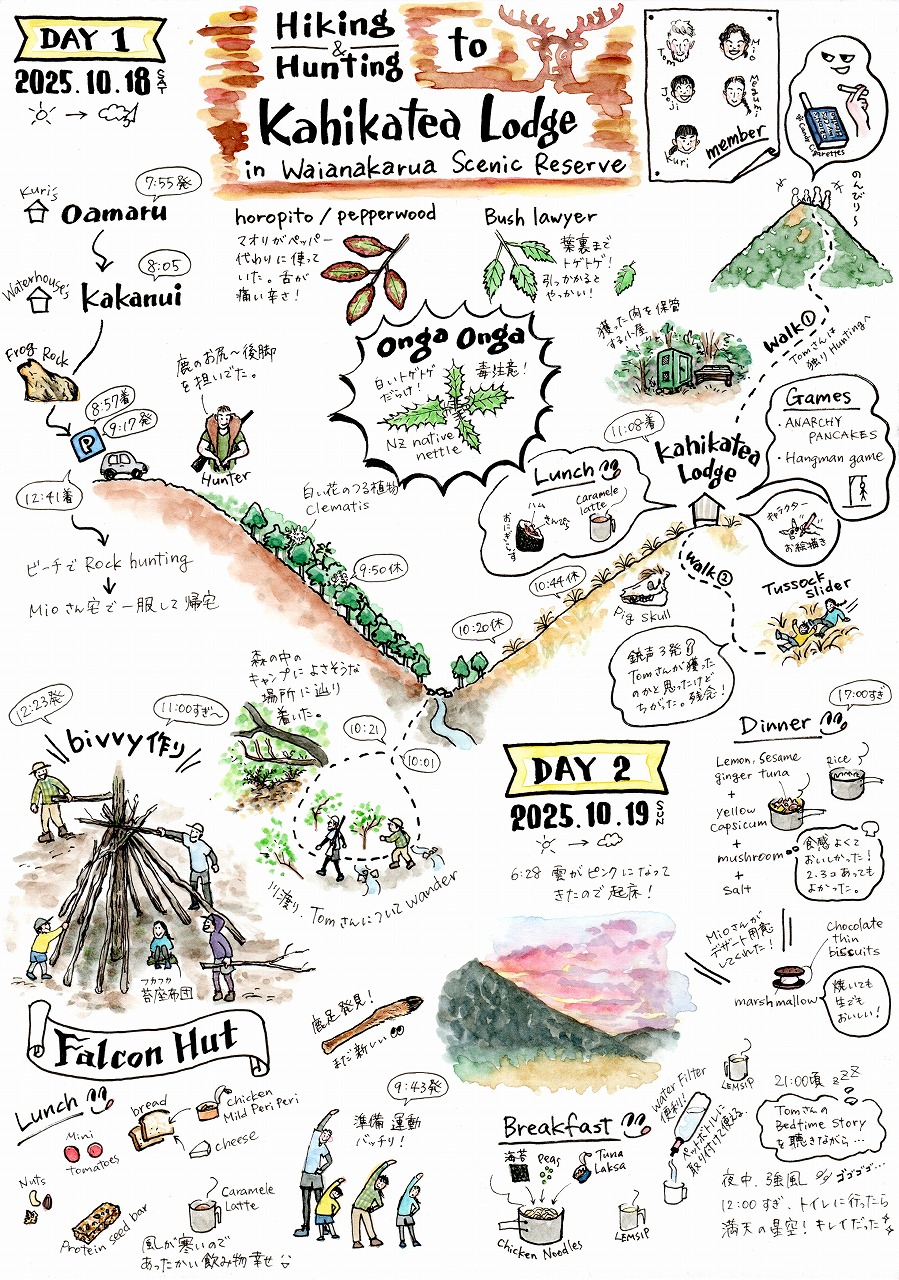 DAY 1
2025.10.18 SAT
Hiking
&
Hunting
to
Kahikatea Lodge
in Waianakarua Scenic Reserve
Tom
Mio
Joji
Megumi
Kuri
member
Candy Cigarettes
のんびり〜
Kuri's
7:55発
Oamaru
Waterhouse's
8:05
Kakanui
Frog Rock
8:57着
9:17発
P
12:41着
ビーチで Rock hunting
Mioさん宅で一服して帰宅
horopito / pepperwood
マオリがペッパー
代わりに使って
いた。舌が
痛い辛さ!
Bush lawyer
葉裏まで
トゲトゲ!
引っかかると
やっかい!
Onga Onga
白いトゲトゲ
だらけ!
毒注意!
NZ native
nettle
鹿のお尻〜後脚
を担いでた。
Hunter
白い花のつる植物
Clematis
9:50休
10:20休
10:44休
獲った肉を保管
する小屋
Walk①
Tomさんは
独りHuntingへ
11:08着
Kahikatea
Lodge
Games
・ANARCHY
PANCAKES
・Hangman game
キャラクター
お絵描き
Lunch
おにぎらず
ハム
きんぴら
caramele
latte
Walk②
Pig skull
Tussock
slider
銃声3発!!
Tomさんが獲った
のかと思ったけど
ちがった。残念!
17:00すぎ
Dinner
Lemon, Sesame
ginger tuna
+
Yellow
capsicum
+
mushroom
+
salt
Rice
食感よくて
おいしかった!
2.3コあっても
よかった。
Mioさんが
デザート用意
してくれた!
Chocolate
thin
biscuits
marshmallow
焼いても
生でも
おいしい!
LEMSIP
21:00頃 zzz
Tomさんの
Bedtime Story
を聴きながら…
夜中、強風 ゴゴゴゴ…
12:00すぎ、トイレに行ったら
満天の星空!キレイだった
DAY 2
2025.10.19 SUN
6:28 雲がピンクになって
きたので起床!
Breakfast
海苔
peas
Tuna
Laksa
Chicken Noodles
LEMSIP
Water Filter
便利!
ペットボトルに
取り付けて使える。
9:43発
準備運動
バッチリ!
10:01
10:21
川渡り、Tomさんについてwander
森の中の
キャンプによさそうな
場所に辿り
着いた。
11:00すぎ〜
12:23発
bivvy作り
フカフカ
苔座布団
鹿足発見!
まだ新しい
Falcon Hut
Lunch
bread
Chicken
Mild Peri Peri
cheese
Mini
tomatoes
Nuts
Protein seed bar
Caramele
Latte
風が寒いので
あったかい飲み物幸せ